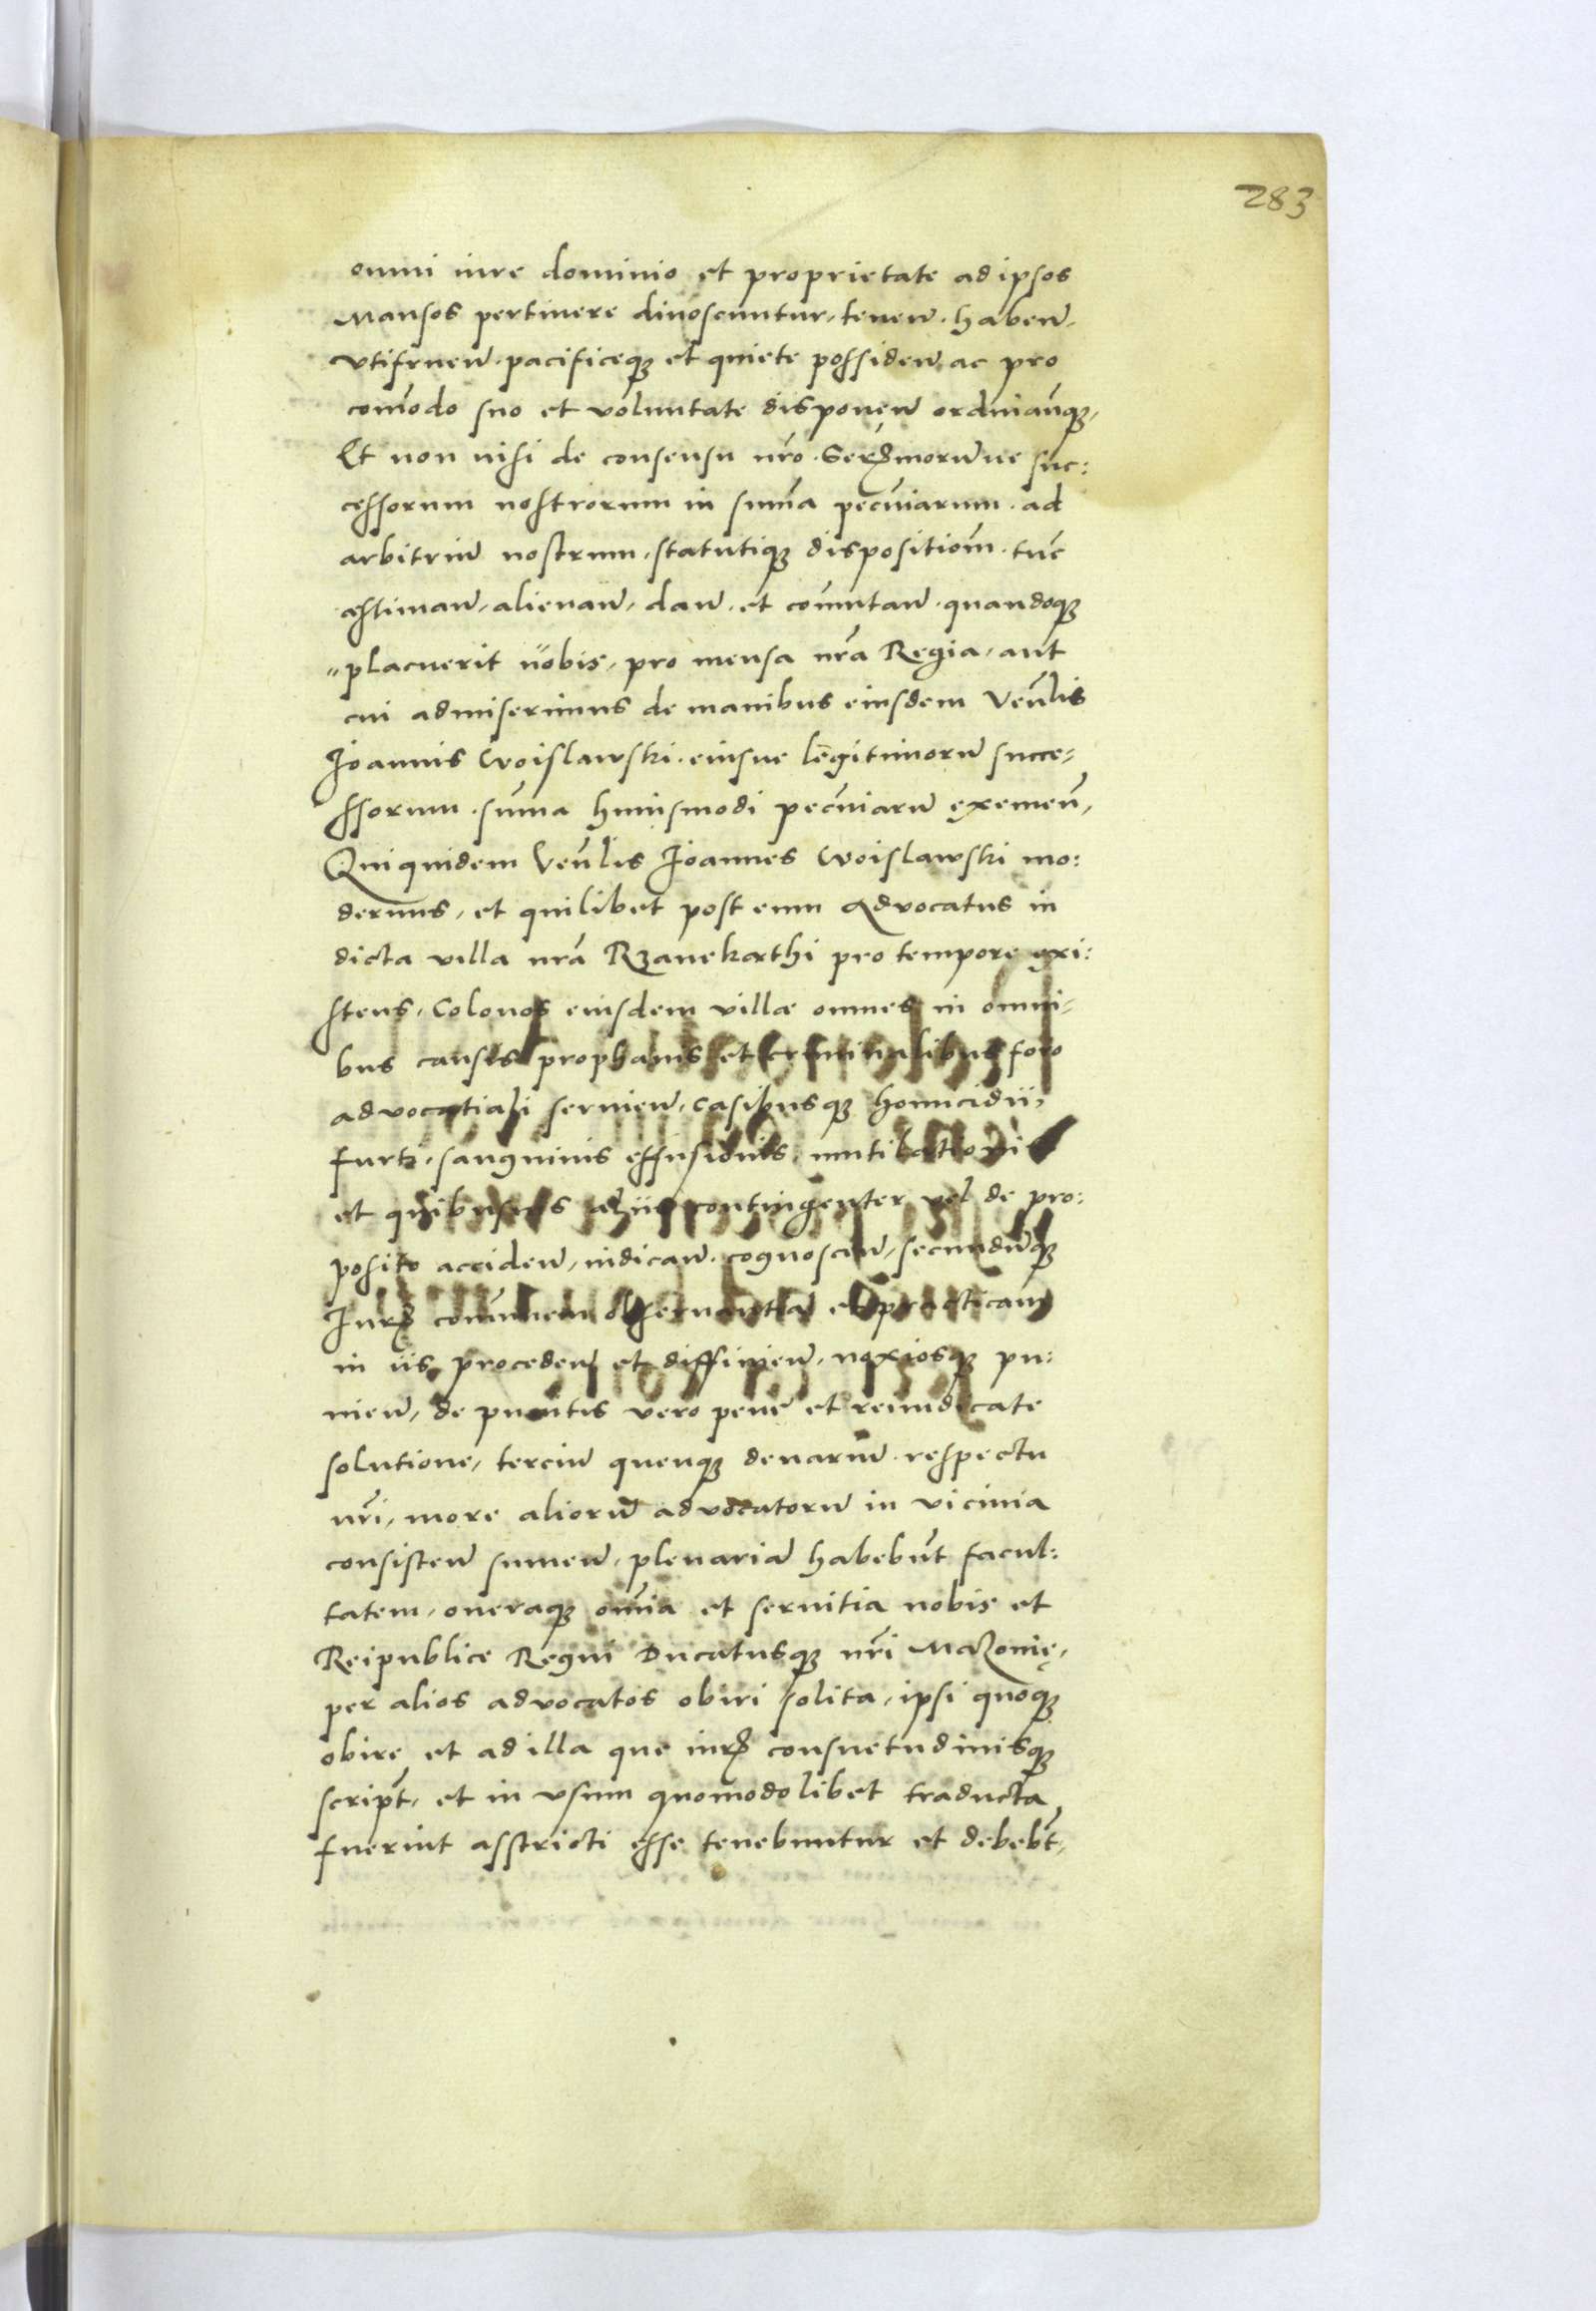 283
omni iure dominio et proprietate ad ipsos
Mansos pertinere dinoscuntur, tenen̄. haben̄.
vtifruen̄. pacificeqꝫ et quiete possiden̄, ac pro
com̄odo suo et voluntate disponen̄ ordinan̄qꝫ,
Et non nisi de consensu nr̄o. Serꝫmorum̄ue suc:
cessorum nostrorum in sum̄a pecūiarum. ad
arbitriū nostrum. statutiqꝫ dispositiōm. tūc
estiman̄, alienan̄, dan̄. et com̄utan̄. quandoqꝫ
placuerit nobis, pro mensa nr̄a Regia, aut
cui admiserimus de manibus eiusdem Ven̄lis
Ioannis Woislawski. eiusue legitimorū succe-
ssorum. sum̄a huiusmodi pecūiarū exemen̄,
Qui quidem Ven̄lis Ioannes Woislawski mo:
dernus, et quilibet post eum Aduocatus in
dicta villa nr̄a Rzanekathi pro tempore exi:
stens, Colonos eiusdem villæ omnes in omni-
bus causis prophanis et criminalibus foro
advocatiali seruien̄, casibusqꝫ homicidii,
furti, sanguinis effusionis, mutilationis
et quibusuis aliis contingenter vel de pro:
posito acciden̄, iudican̄. cognoscen̄, secundūqꝫ
Iurꝫ com̄unem obseruantiā et practicam
in iis proceden̄ et diffinien̄, noxiosqꝫ pu:
nien̄, de punitis vero pene et reiudicate
solutione, terciū quenqꝫ denariū. respectu
nr̄i, more aliorū advocatorū in vicinia
consisten̄ sumen̄, plenariā habebūt facul:
tatem, oneraqꝫ om̄ia et seruitia nobis et
Reipublice Regni Ducatusqꝫ nr̄i Mazouię,
per alios advocatos obiri solita, ipsi quoqꝫ
obire et ad illa que iurꝫ consuetudinisqꝫ
script̄, et in vsum quomodolibet traducta
fuerint asstricti esse tenebuntur et debebt̄,